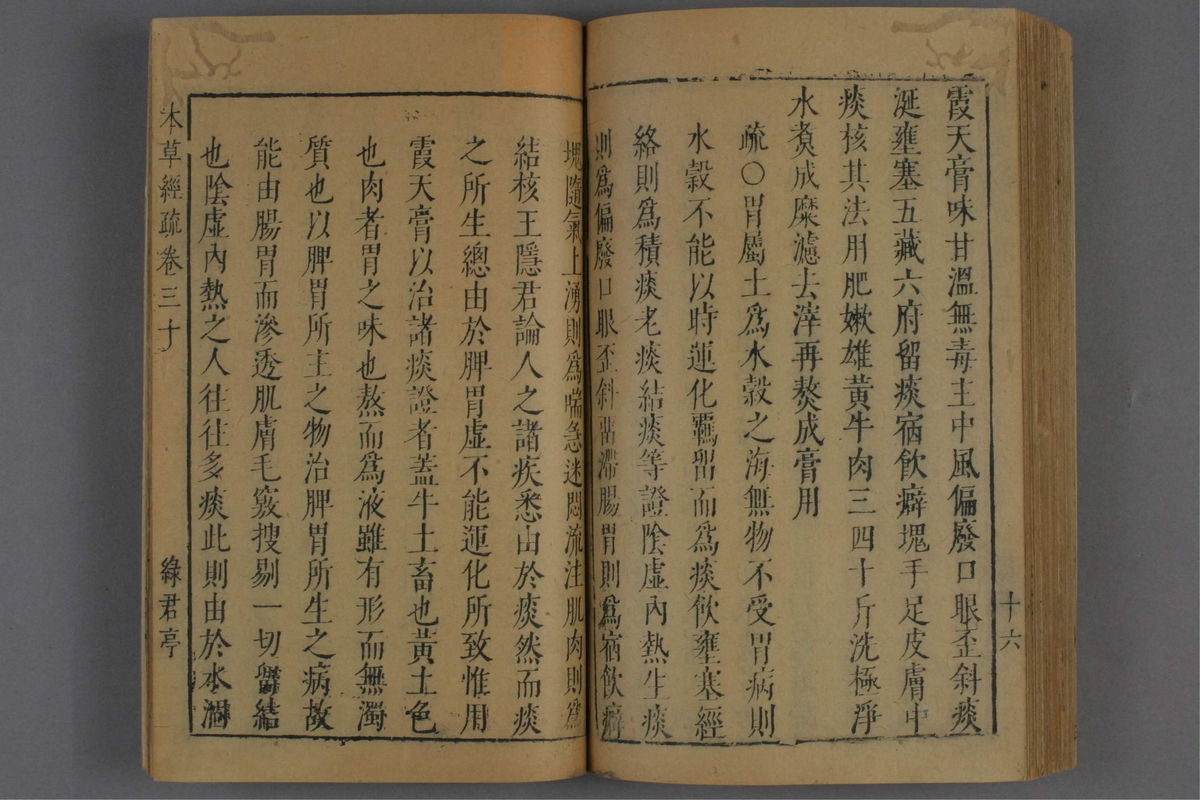 霞天膏味甘溫無毒主中風偏廢口眼歪斜痰
涎壅塞五藏六府留痰宿飲癖塊手足皮膚中
痰核其法用肥嫩雄黃牛肉三四十斤洗極淨
水煑成糜濾去滓再熬成膏用
疏〇胃屬土為水穀之海無物不受胃病則
水穀不能以時運化羈留而為痰飲壅塞經
絡則為積痰老痰結痰等證陰虛內熱生痰
則為偏廢口眼歪斜留滯腸胃則為宿飲癖
十六
塊隨氣上湧則為喘急迷悶流注肌肉則為
結核王隱君論人之諸疾悉由於痰然而痰
之所生總由於脾胃虛不能運化所致惟用
霞天膏以治諸痰證者蓋牛土畜也黃土色
也肉者胃之味也熬而為液雖有形而無濁
質也以脾胃所主之物治脾胃所生之病故
能由腸胃而滲透肌膚毛竅搜剔一切留結
也陰虛內熱之人往往多痰此則由於水涸
本草經疏卷三十
綠君亭